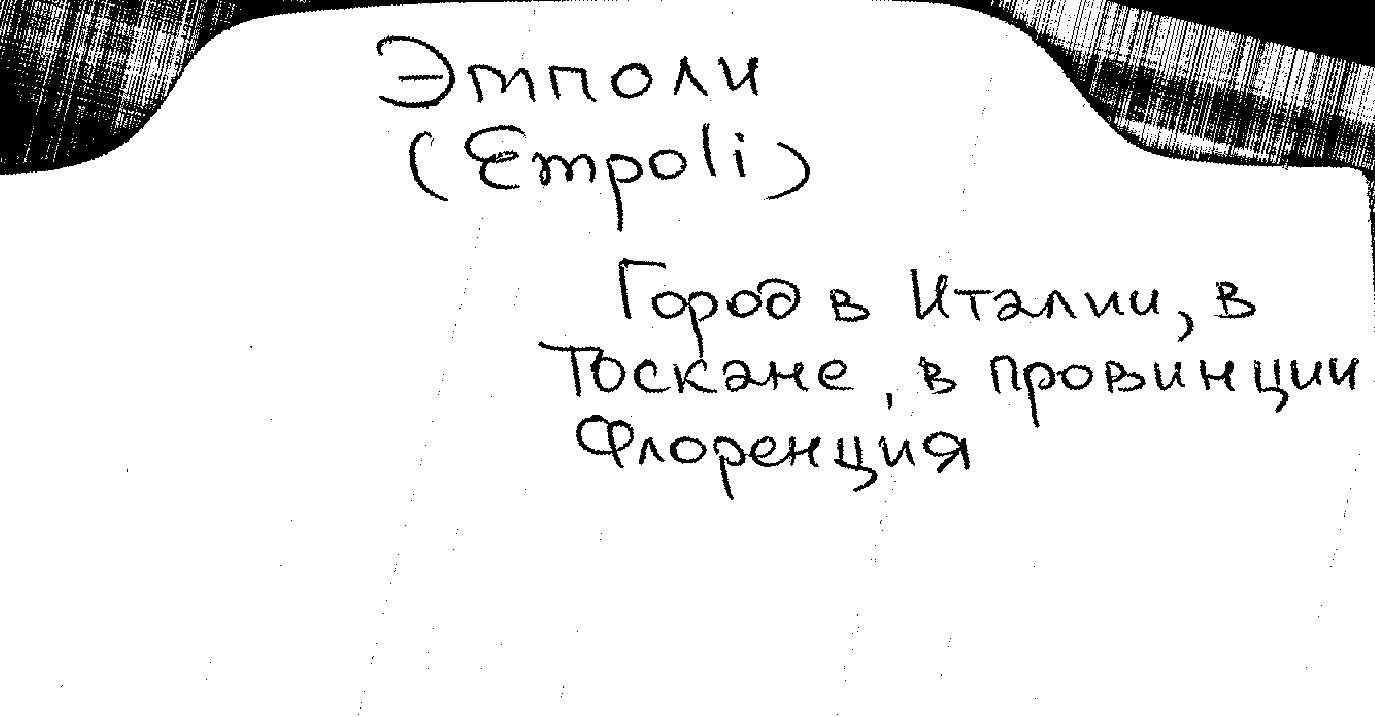 Эмполи
(Empoli)
Город в Италии, в
Тоскане, в провинции
Флоренция